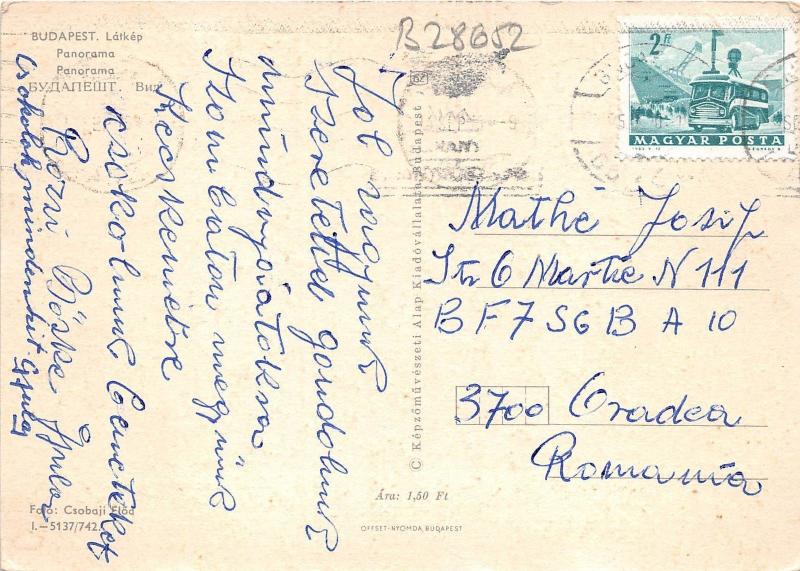 BUDAPEST. Látkép
Panorama
Panorama
БУДАПЕШТ. Вид
B28652
2 Ft
MAGYAR POSTA
Jól vagyunk
szeretettel gondolunk
mindnyájatokra
Szombaton megyünk
Kecskemétre
csokolunk benneteket
Rozsi Böske Gyula
Csokolok mindenkit Gyula
© Képzőművészeti Alap Kiadóvállalata, Budapest
Mathé Josif
Str 6 Martie N 111
BF7 SGB A 10
3700 Oradea
Romania
Ára: 1,50 Ft
Fotó: Csobaji Előd
I.—5137/742.
OFFSET-NYOMDA, BUDAPEST